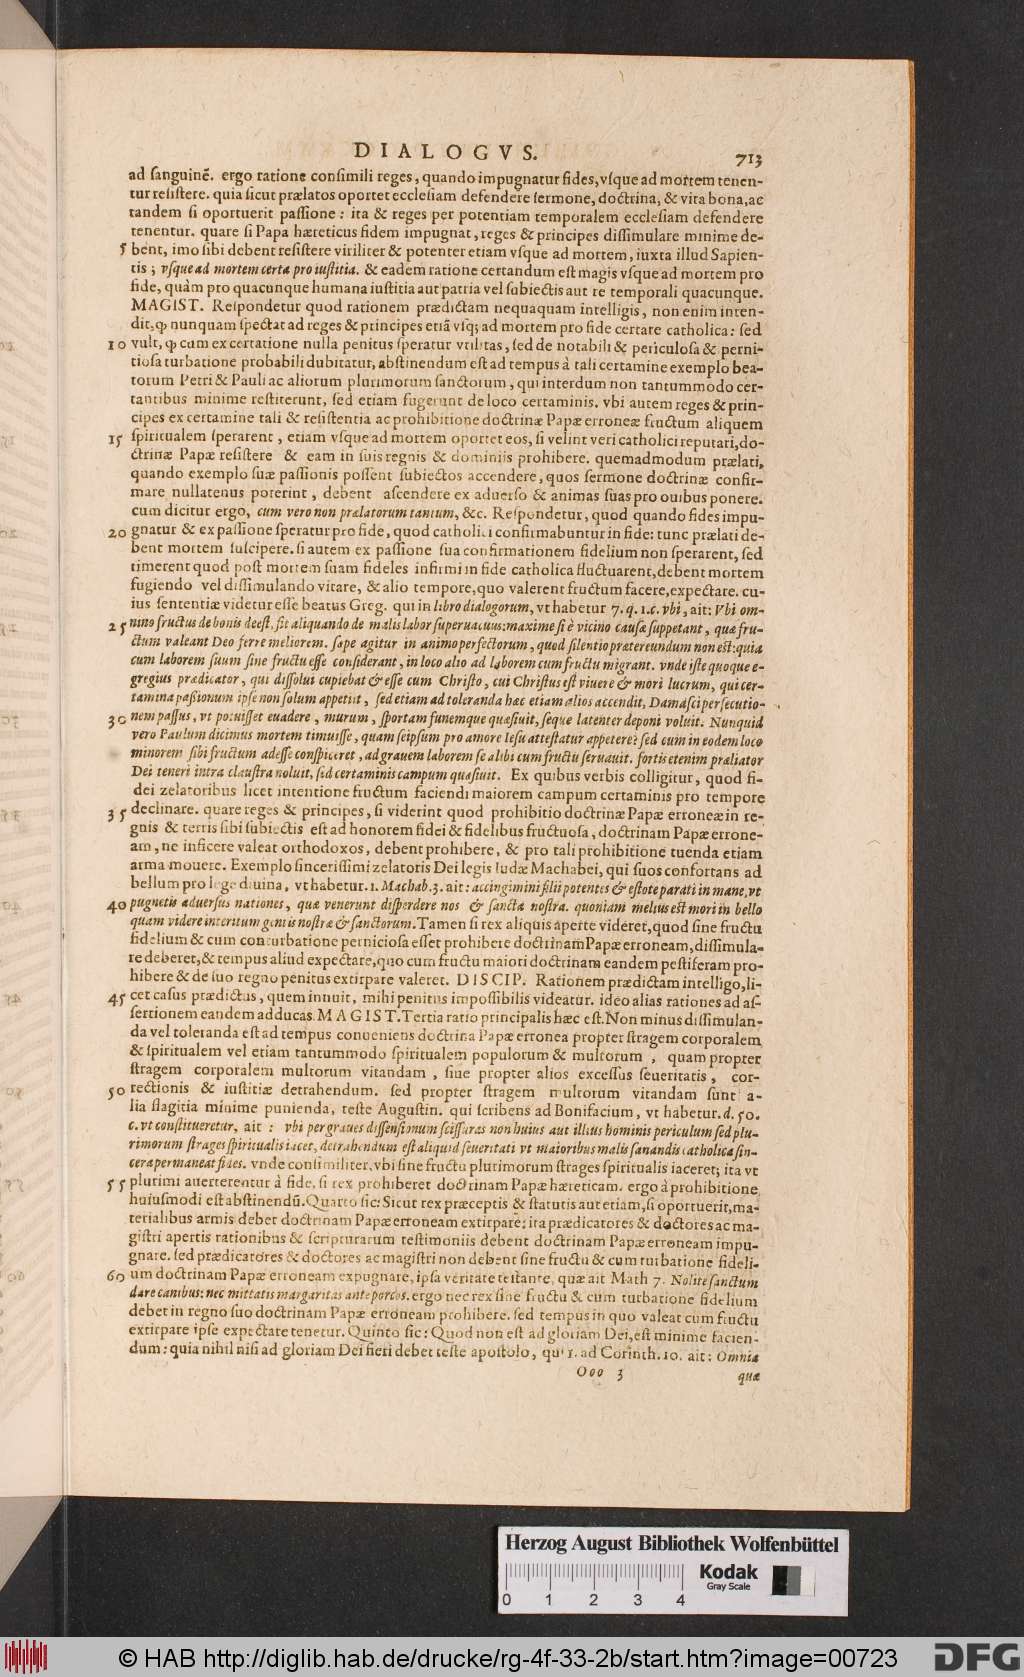 DIALOGVS. 713
ad sanguinē. ergo ratione consimili reges, quando impugnatur fides, vsque ad mortem tenen-
tur resistere. quia sicut prælatos oportet ecclesiam defendere sermone, doctrina, & vita bona, ac
tandem si oportuerit passione: ita & reges per potentiam temporalem ecclesiam defendere
tenentur. quare si Papa hæreticus fidem impugnat, reges & principes dissimulare minime de-
5 bent, imo sibi debent resistere viriliter & potenter etiam vsque ad mortem, iuxta illud Sapien-
tis; vsque ad mortem certa pro iustitia. & eadem ratione certandum est magis vsque ad mortem pro
fide, quàm pro quacunque humana iustitia aut patria vel subiectis aut re temporali quacunque.
MAGIST. Respondetur quod rationem prædictam nequaquam intelligis, non enim inten-
dit, ꝙ nunquam spectat ad reges & principes etiā vsq; ad mortem pro fide certare catholica: sed
10 vult, ꝙ cum ex certatione nulla penitus speratur vtilitas, sed de notabili & periculosa & perni-
tiosa turbatione probabili dubitatur, abstinendum est ad tempus à tali certamine exemplo bea-
torum Petri & Pauli ac aliorum plurimorum sanctorum, qui interdum non tantummodo cer-
tantibus minime restiterunt, sed etiam fugerunt de loco certaminis. vbi autem reges & prin-
cipes ex certamine tali & resistentia ac prohibitione doctrinæ Papæ erroneæ fructum aliquem
15 spiritualem sperarent, etiam vsque ad mortem oportet eos, si velint veri catholici reputari, do-
ctrinæ Papæ resistere & eam in suis regnis & dominiis prohibere. quemadmodum prælati,
quando exemplo suæ passionis possent subiectos accendere, quos sermone doctrinæ confir-
mare nullatenus poterint, debent ascendere ex aduerso & animas suas pro ouibus ponere.
cum dicitur ergo, cum vero non prælatorum tantum, &c. Respondetur, quod quando fides impu-
20 gnatur & ex passione speratur pro fide, quod catholici confirmabuntur in fide: tunc prælati de-
bent mortem suscipere. si autem ex passione sua confirmationem fidelium non sperarent, sed
timerent quod post mortem suam fideles infirmi in fide catholica fluctuarent, debent mortem
fugiendo vel dissimulando vitare, & alio tempore, quo valerent fructum facere, expectare. cu-
ius sententiæ videtur esse beatus Greg. qui in libro dialogorum, vt habetur 7. q. 1. c. vbi, ait: Vbi om-
25 nino fructus de bonis deest, fit aliquando de malis labor superuacuus: maxime si è vicino causæ suppetant, quæ fru-
ctum valeant Deo ferre meliorem. sæpe agitur in animo perfectorum, quod silentio prætereundum non est: quia
cum laborem suum sine fructu esse considerant, in loco alio ad laborem cum fructu migrant. vnde iste quoque e-
gregius prædicator, qui dissolui cupiebat & esse cum Christo, cui Christus est viuere & mori lucrum, qui cer-
tamina passionum ipse non solum appetiit, sed etiam ad toleranda hæc etiam alios accendit, Damasci persecutio-
30 nem passus, vt potuisset euadere, murum, sportam funemque quæsiuit, seque latenter deponi voluit. Nunquid
vero Paulum dicimus mortem timuisse, quam seipsum pro amore Iesu attestatur appetere? sed cum in eodem loco
minorem sibi fructum adesse conspiceret, ad grauem laborem se alibi cum fructu seruauit. fortis etenim præliator
Dei teneri intra claustra noluit, sed certaminis campum quæsiuit. Ex quibus verbis colligitur, quod fi-
dei zelatoribus licet intentione fructum faciendi maiorem campum certaminis pro tempore
35 declinare. quare reges & principes, si viderint quod prohibitio doctrinæ Papæ erroneæ in re-
gnis & terris sibi subiectis est ad honorem fidei & fidelibus fructuosa, doctrinam Papæ errone-
am, ne inficere valeat orthodoxos, debent prohibere, & pro tali prohibitione tuenda etiam
arma mouere. Exemplo sincerissimi zelatoris Dei legis Iudæ Machabei, qui suos confortans ad
bellum pro lege diuina, vt habetur. 1. Machab. 3. ait: accingimini filii potentes & estote parati in mane, vt
40 pugnetis aduersus nationes, quæ venerunt disperdere nos & sancta nostra. quoniam melius est mori in bello
quam videre interitum gentis nostræ & sanctorum. Tamen si rex aliquis aperte videret, quod sine fructu
fidelium & cum conturbatione perniciosa esset prohibere doctrinam Papæ erroneam, dissimula-
re deberet, & tempus aliud expectare, quo cum fructu maiori doctrinam eandem pestiferam pro-
hibere & de suo regno penitus extirpare valeret. DISCIP. Rationem prædictam intelligo, li-
45 cet casus prædictus, quem innuit, mihi penitus impossibilis videatur. ideo alias rationes ad as-
sertionem eandem adducas. MAGIST. Tertia ratio principalis hæc est. Non minus dissimulan-
da vel toleranda est ad tempus conueniens doctrina Papæ erronea propter stragem corporalem
& spiritualem vel etiam tantummodo spiritualem populorum & multorum, quam propter
stragem corporalem multorum vitandam, siue propter alios excessus seueritatis, cor-
50 rectionis & iustitiæ detrahendum. sed propter stragem multorum vitandam sunt a-
lia flagitia minime punienda, teste Augustin. qui scribens ad Bonifacium, vt habetur. d. 50.
c. vt constitueretur, ait: vbi per graues dissensimum scissuras non huius aut illius hominis periculum sed plu-
rimorum strages spiritualis iacet, detrahendum est aliquid seueritati vt maioribus malis sanandis catholica sin-
cera permaneat fides. vnde consimiliter, vbi sine fructu plurimorum strages spiritualis iaceret, ita vt
55 plurimi auerterentur à fide, si rex prohiberet doctrinam Papæ hæreticam. ergo à prohibitione
huiusmodi est abstinendū. Quarto sic: Sicut rex præceptis & statutis aut etiam, si oportuerit, ma-
terialibus armis debet doctrinam Papæ erroneam extirpare: ita prædicatores & doctores ac ma-
gistri apertis rationibus & scripturarum testimoniis debent doctrinam Papæ erroneam impu-
gnare. sed prædicatores & doctores ac magistri non debent sine fructu & cum turbatione fideli-
60 um doctrinam Papæ erroneam expugnare, ipsa veritate testante, quæ ait Math 7. Nolite sanctum
dare canibus: nec mittatis margaritas ante porcos. ergo nec rex sine fructu & cum turbatione fidelium
debet in regno suo doctrinam Papæ erroneam prohibere. sed tempus in quo valeat cum fructu
extirpare ipse expectare tenetur. Quinto sic: Quod non est ad gloriam Dei, est minime facien-
dum: quia nihil nisi ad gloriam Dei fieri debet teste apostolo, qui 1. ad Corinth. 10. ait: Omnia
Ooo 3 quæ
Herzog August Bibliothek Wolfenbüttel
Kodak
Gray Scale
0 1 2 3 4
© HAB http://diglib.hab.de/drucke/rg-4f-33-2b/start.htm?image=00723
DFG